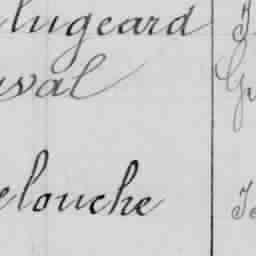 lugeard
val
elouche